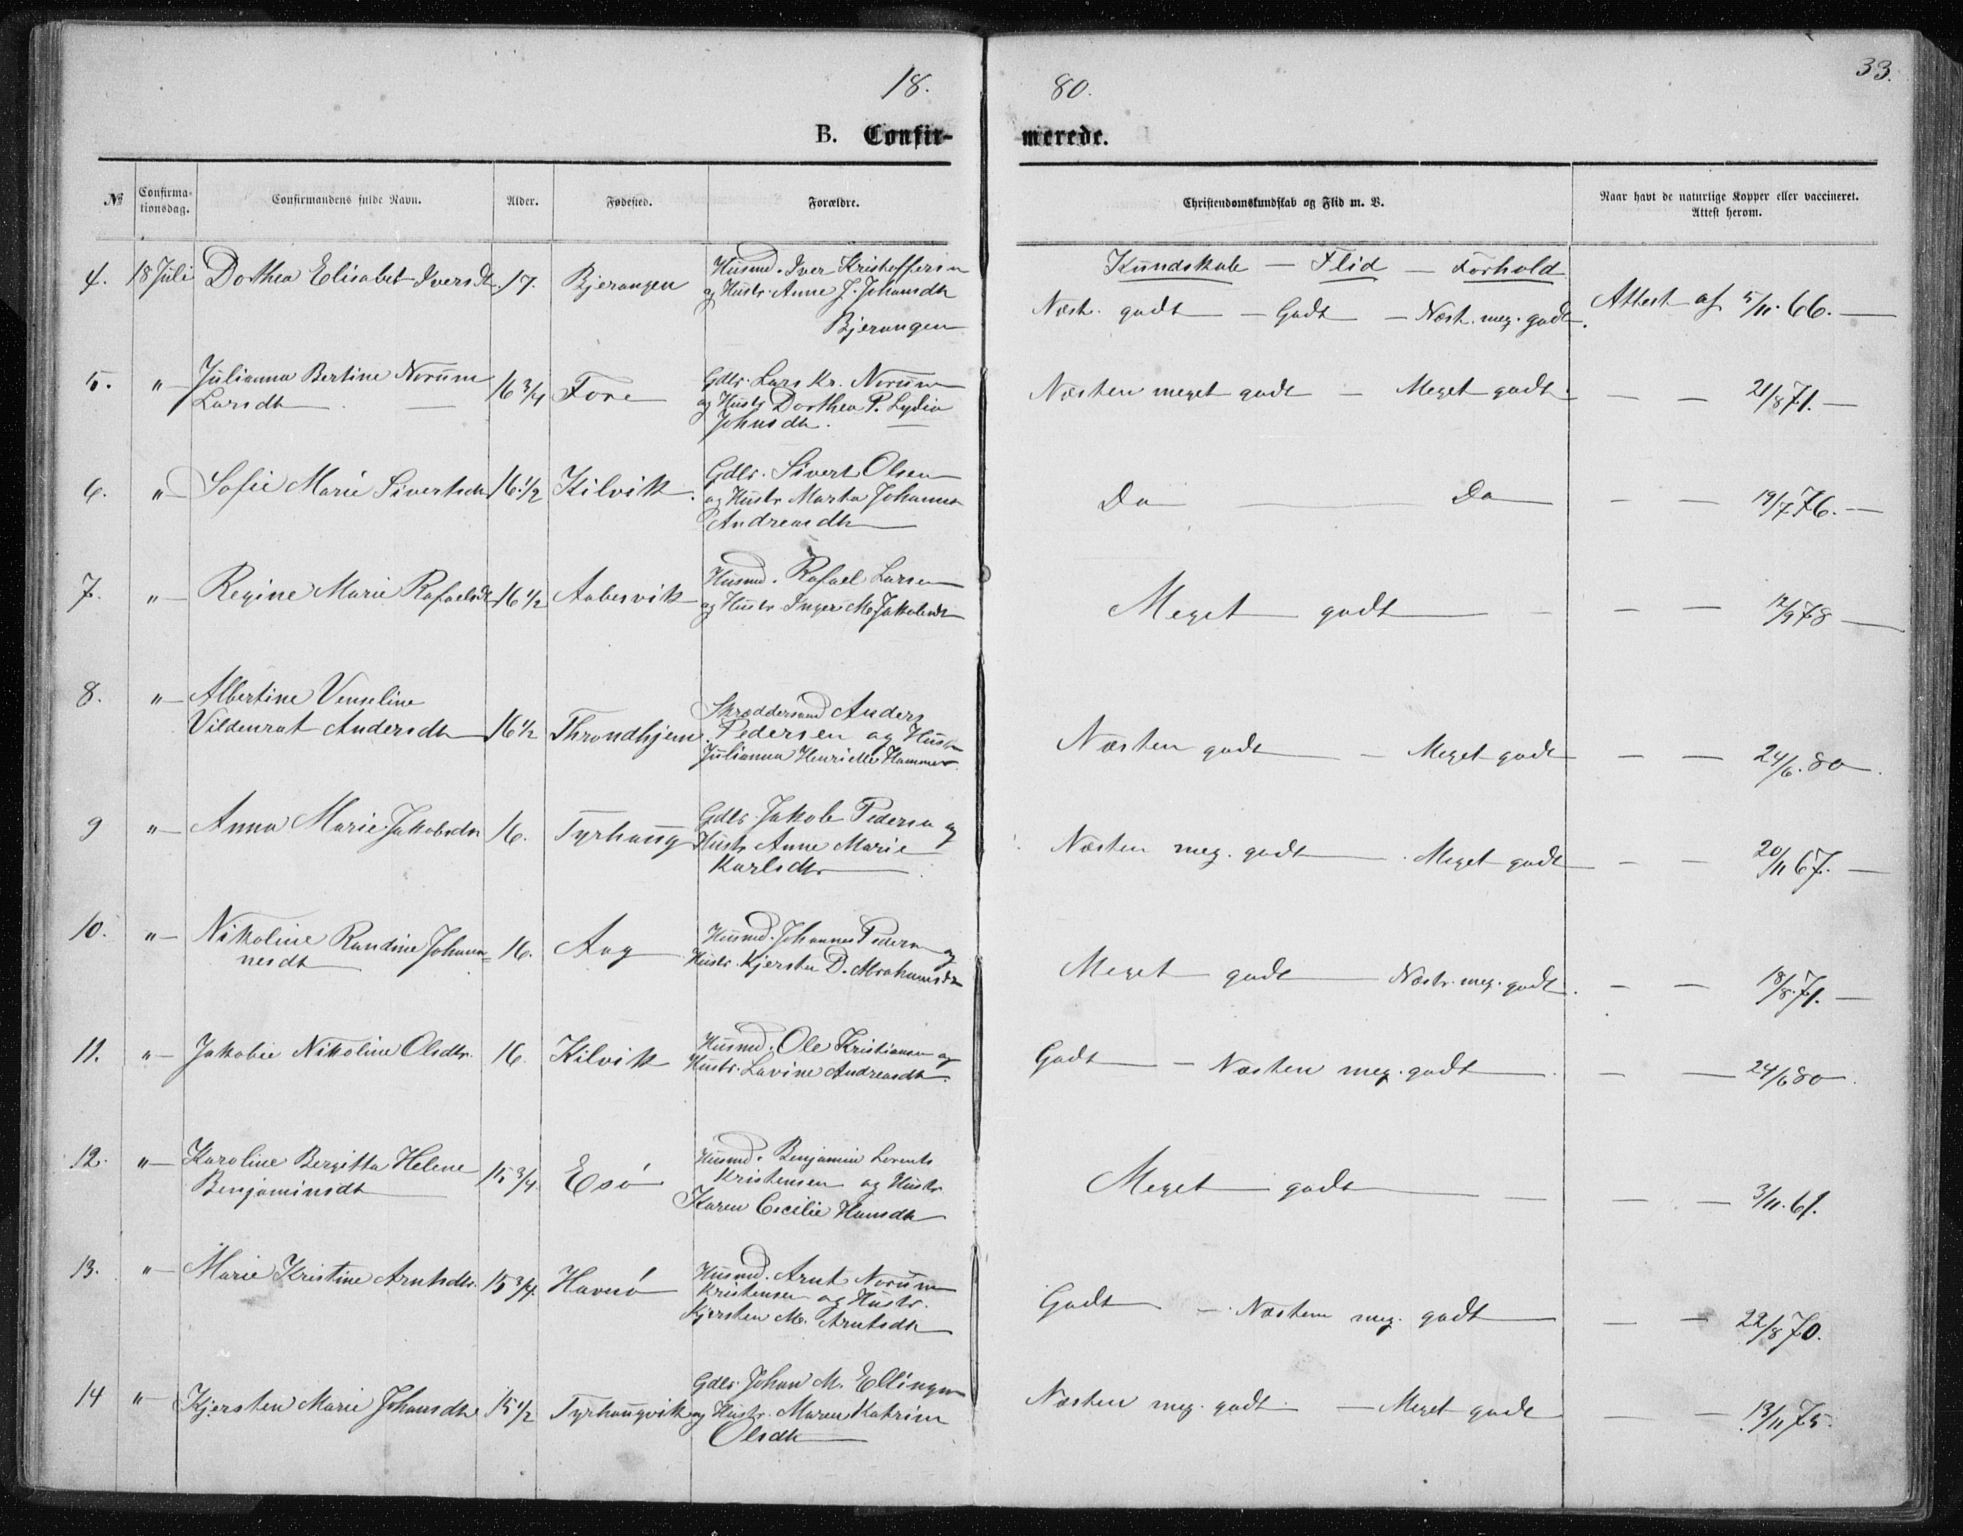 18. 80. 33.
B. Confir- merede.
№ Confirma-tionsdag. Confirmandens fulde Navn. Alder. Fødested. Forældre. Christendomskundskab og Flid m. V. Naar havt de naturlige Kopper eller vaccineret. Attest herom.
Kundskab — Flid — Forhold
4. 18 Juli Dorthea Elisabet Iversdt. 17. Bjerangen
Husmd. Iver Kristoffersen
og Hustr. Anne J. Johansdtr
Bjerangen
Næst. godt — Godt — Næst. meg. godt. Attest af 5/11 66. —
5. " Julianna Bertine Norum
Larsdtr — 16 3/4 Fore
Gdbr. Lars Kr. Norum
og Hustr Dorthea P. Lydia
Johnsdtr.
Næsten meget godt — Meget godt — — 21/8 71. —
6. " Sofie Marie Sivertsdtr 16 1/2 Kilvik.
Gdbr. Sivert Olsen
og Hustr Marta Johanna
Andreasdtr
Do — Do — — 19/7 76. —
7. " Regine Marie Rafaelsdt 16 1/2 Aabesvik
Husmd. Rafael Larsen
og Hustr Inger M. Jakobsdt
Meget godt — — — 12/9 78 —
8. " Albertine Venseline
Vildenrat Andersdtr 16 1/2 Throndhjem
Skræddersvend Anders
Pedersen og Hustr
Julianna Henriette Hammer
Næsten godt — Meget godt — — 24/6. 80.
9 " Anna Marie Jakobsdtr 16. Tyrhaug
Gdbr. Jakob Pedersen og
Hustr Anne Marie
Karlsdtr
Næsten meg. godt — Meget godt — — 20/11 67. —
10. " Nikoline Randine Johan=
nesdt 16. Aag
Husmd. Johannes Pedersen og
Hustr. Kjersten D. Abrahamsdtr
Meget godt — Næst. meg. godt. — — 18/8. 71. —
11. " Jakobie Nikoline Olsdtr. 16. Kilvik
Husmd. Ole Kristiansen og
Hustr. Lavine Andreasdtr.
Godt — Næsten meg. godt — — 24/6 80.
12. " Karoline Bergitta Helene
Benjaminsdt 15 3/4. Esø
Husmd. Benjamin Lorents
Kristensen og Hustr
Karen Cecilie Hansdtr
Meget godt — — — 3/11. 61.
13. " Marie Kristine Arntsdtr. 15 3/4. Havnø
Husmd. Arnt Norum
Kristensen og Hustr.
Kjersten M. Arntsdtr
Godt — Næsten meg. godt — — 22/8 70.
14 " Kjersten Marie Johansdtr 15 1/2 Tyrhaugvik
Gdbr. Johan M. Ellingsen
og Hustr. Maren Katrine
Olsdtr
Næsten meg. godt — Meget godt — — 13/11 75.